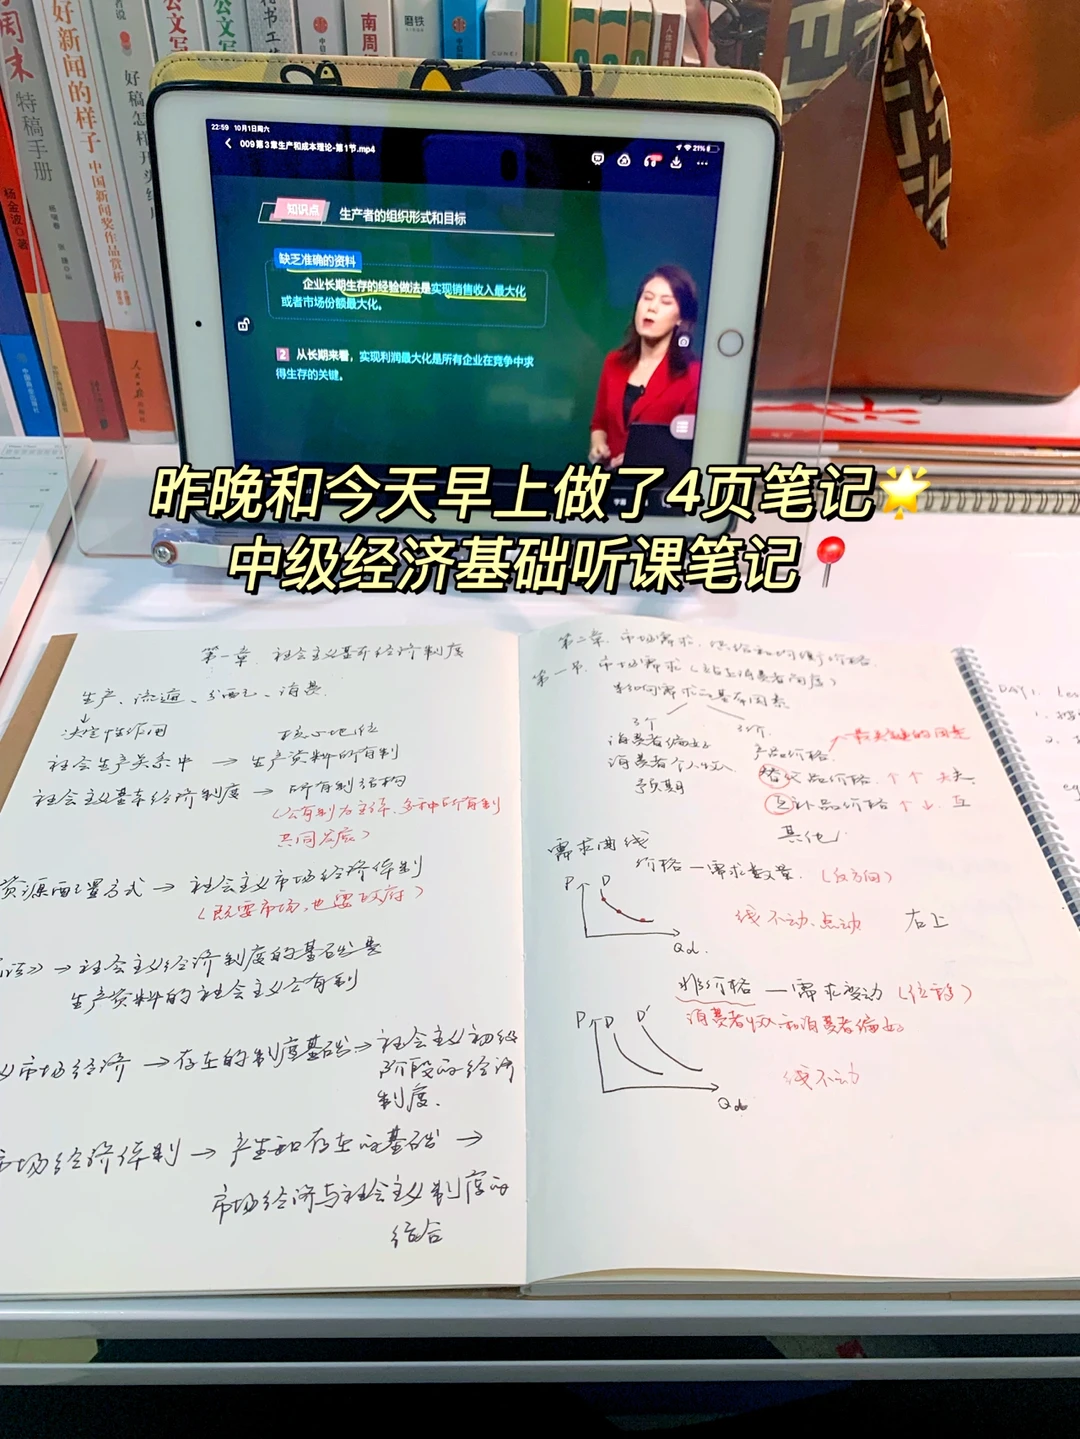 周末
特稿手册
杨金波◎著
好新闻的样子
中国新闻奖作品赏析
人民日报
好稿怎样
公文写
公文写
南周
磨铁
22:59 10月1日周六
21%
009第3章生产和成本理论-第1节.mp4
知识点
生产者的组织形式和目标
缺乏准确的资料
企业长期生存的经验做法是实现销售收入最大化
或者市场份额最大化。
2 从长期来看，实现利润最大化是所有企业在竞争中求
得生存的关键。
昨晚和今天早上做了4页笔记🌟
中级经济基础听课笔记📍
第一章 社会主义基本经济制度
生产、流通、分配、消费
决定性作用
核心地位
社会生产关系中 → 生产资料所有制
社会主义基本经济制度 → 所有制结构
(公有制为主体、多种所有制
共同发展)
资源配置方式 → 社会主义市场经济体制
(既要市场,也要政府)
》→社会主义经济制度的基础是
生产资料的社会主义公有制
义市场经济 →存在的制度基础→社会主义初级
阶段的经济
制度.
市场经济体制 → 产生和存在的基础 →
市场经济与社会主义制度的
结合
第二章、市场需求、供给和均衡价格
第一节、市场需求(站在消费者角度)
影响需求的基本因素
3个
消费者偏好
消费者个人收入
预期
产品价格
最关键的因素
替代品价格 ↑ ↑
互补品价格 ↑ ↓ 互
其他
需求曲线
价格 — 需求数量 (反方向)
P
D
Qd.
线不动、点动
右上
非价格 — 需求变动 (位移)
消费者收入和消费者偏好
P
D
D'
Qd
线不动
DAY1.
1.
2.